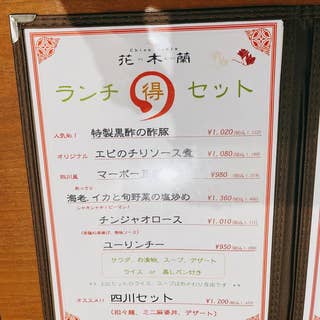 花木蘭
ランチ 得 セット
人気No.1 特製黒酢の酢豚 ¥1,020
オリジナル エビのチリソース煮 ¥1,080
四川風 マーボー豆腐 ¥980
海老、イカと旬野菜の塩炒め ¥1,360
チンジャオロース ¥1,010
ユーリンチー ¥950
サラダ、お漬物、スープ、デザート
ライス or 蒸しパン付き
オススメ!! 四川セット ¥1,200
(担々麺、ミニ麻婆丼、デザート)